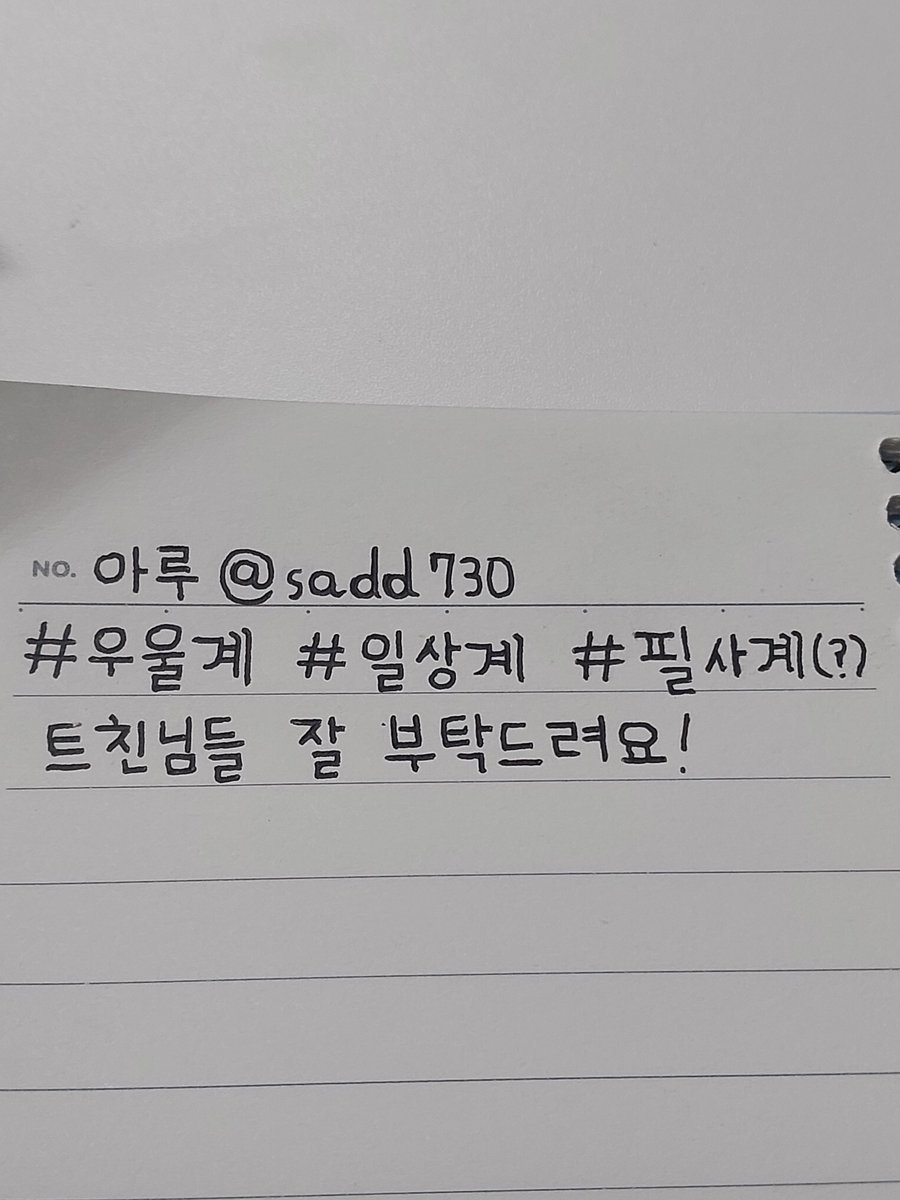 NO. 아루 @sadd730
#우울계 #일상계 #필사계(?)
트친님들 잘 부탁드려요!